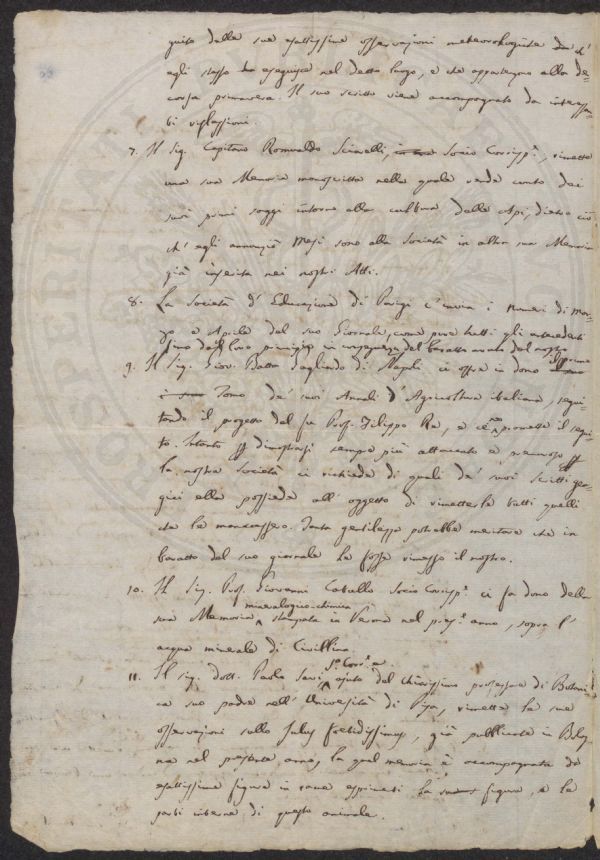 guito delle sue esattissime osservazioni meteorologiche che
egli stesso ha eseguite nel detto luogo, e che appartengono alla de-
corsa primavera. Il suo scritto viene accompagnato da interessan-
ti riflessioni.
7. Il Sig. Capitano Romualdo Socio Corrisp.e, rimette
una sua Memoria manoscritta nella quale rende conto dei
suoi primi saggi intorno alla cultura delle Api, dietro ciò
ch' egli annunziò mesi sono alla Società in altra sua Memoria
già inserita nei nostri Atti.
8. La Società d' Educazione di Parigi c' invia i numeri di mar-
zo e Aprile del suo Giornale, come pure tutti gli antecedenti
fino dal loro principio in conseguenza del baratto avuto del nostro
9. Il Sig. Giov. Batta Gagliardo di Napoli ci offre in dono il primo
Tomo de' suoi Annali d' Agricoltura italiana, segui-
tando il progetto del fu Prof. Filippo Re, e ce ne promette il segui-
to. Intanto p dimostrarsi sempre più attaccato e premuroso p
la nostra Società ci richiede di quali de' suoi Scritti geor-
gici ella possieda all' oggetto di rimetterle tutti quelli
che le mancassero. Tanta gentilezza potrebbe meritare che in
baratto del suo giornale le fosse rimesso il nostro.
10. Il Sig. Prof. Giovanni Catullo Socio Corrisp.e ci fa dono della
sua Memoria mineralogico-chimica stampata in Verona nel pres.e anno, sopra l'
acqua minerale di Civillina.
11. Il Sig. dott. Paolo Savi S.o Corr.e e ajuto del chiarissimo professore di Botani-
ca suo padre nell' Università di Pisa, rimette le sue
osservazioni sullo Julus foetidissimus, già pubblicate in Bolog-
na nel presente anno, la qual memoria è accompagnata da
esattissime figure in rame esprimenti la figura, e le
parti interne di questo animale.